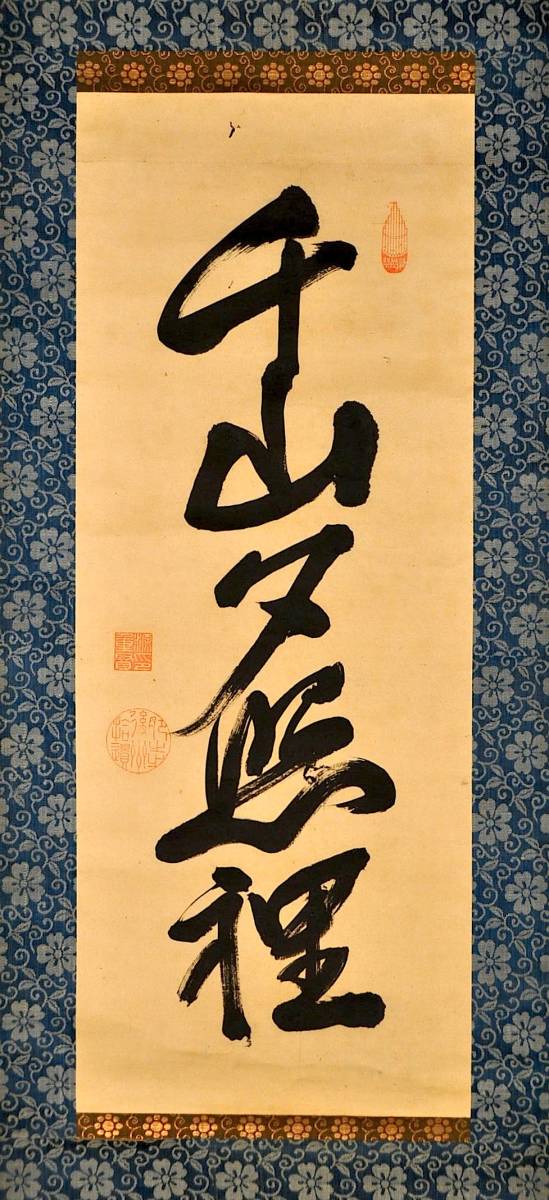 千山夕照裡